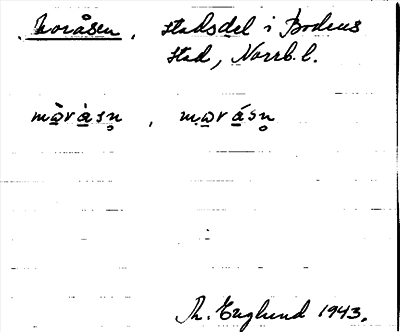 Moråsen, stadsdel i Bodens
stad, Norrb. l.
mòràsn̥, morásn̥
Th. Englund 1943.